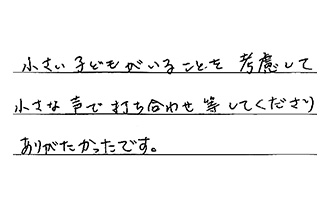 小さい子どもがいることを考慮して
小さな声で打ち合わせ等してくださり
ありがたかったです。